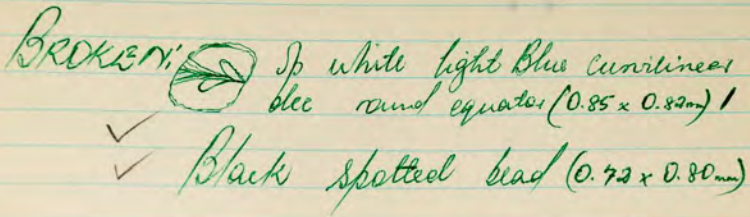 BROKEN: Op white light Blue curvilinear
dec round equator (0.85 x 0.82mm) 1
Black spotted bead (0.72 x 0.80mm)